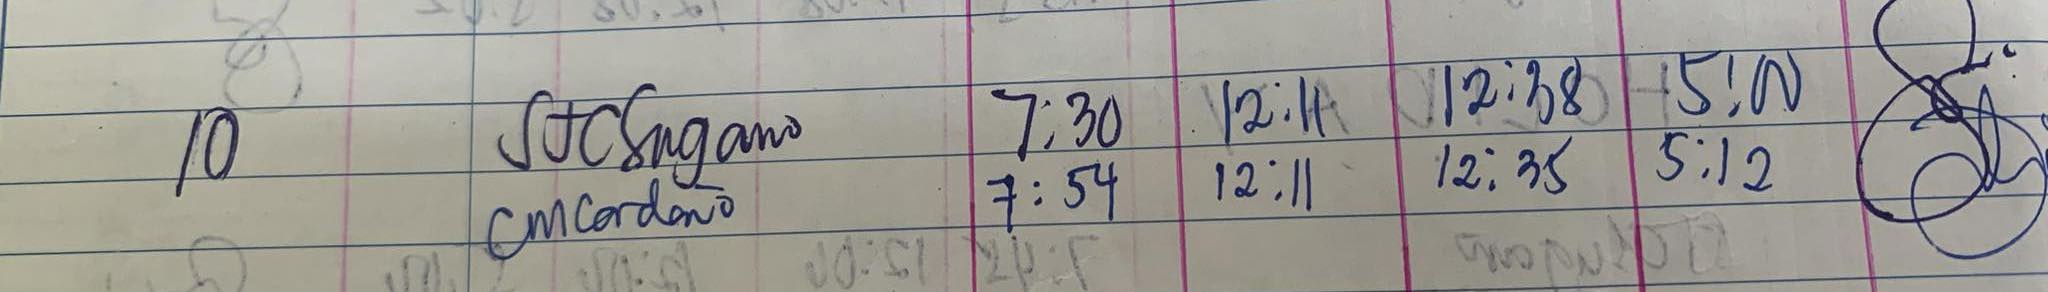 10 SJCSugano 7:30 12:11 12:38 5:00
CMCordano 7:54 12:11 12:35 5:12